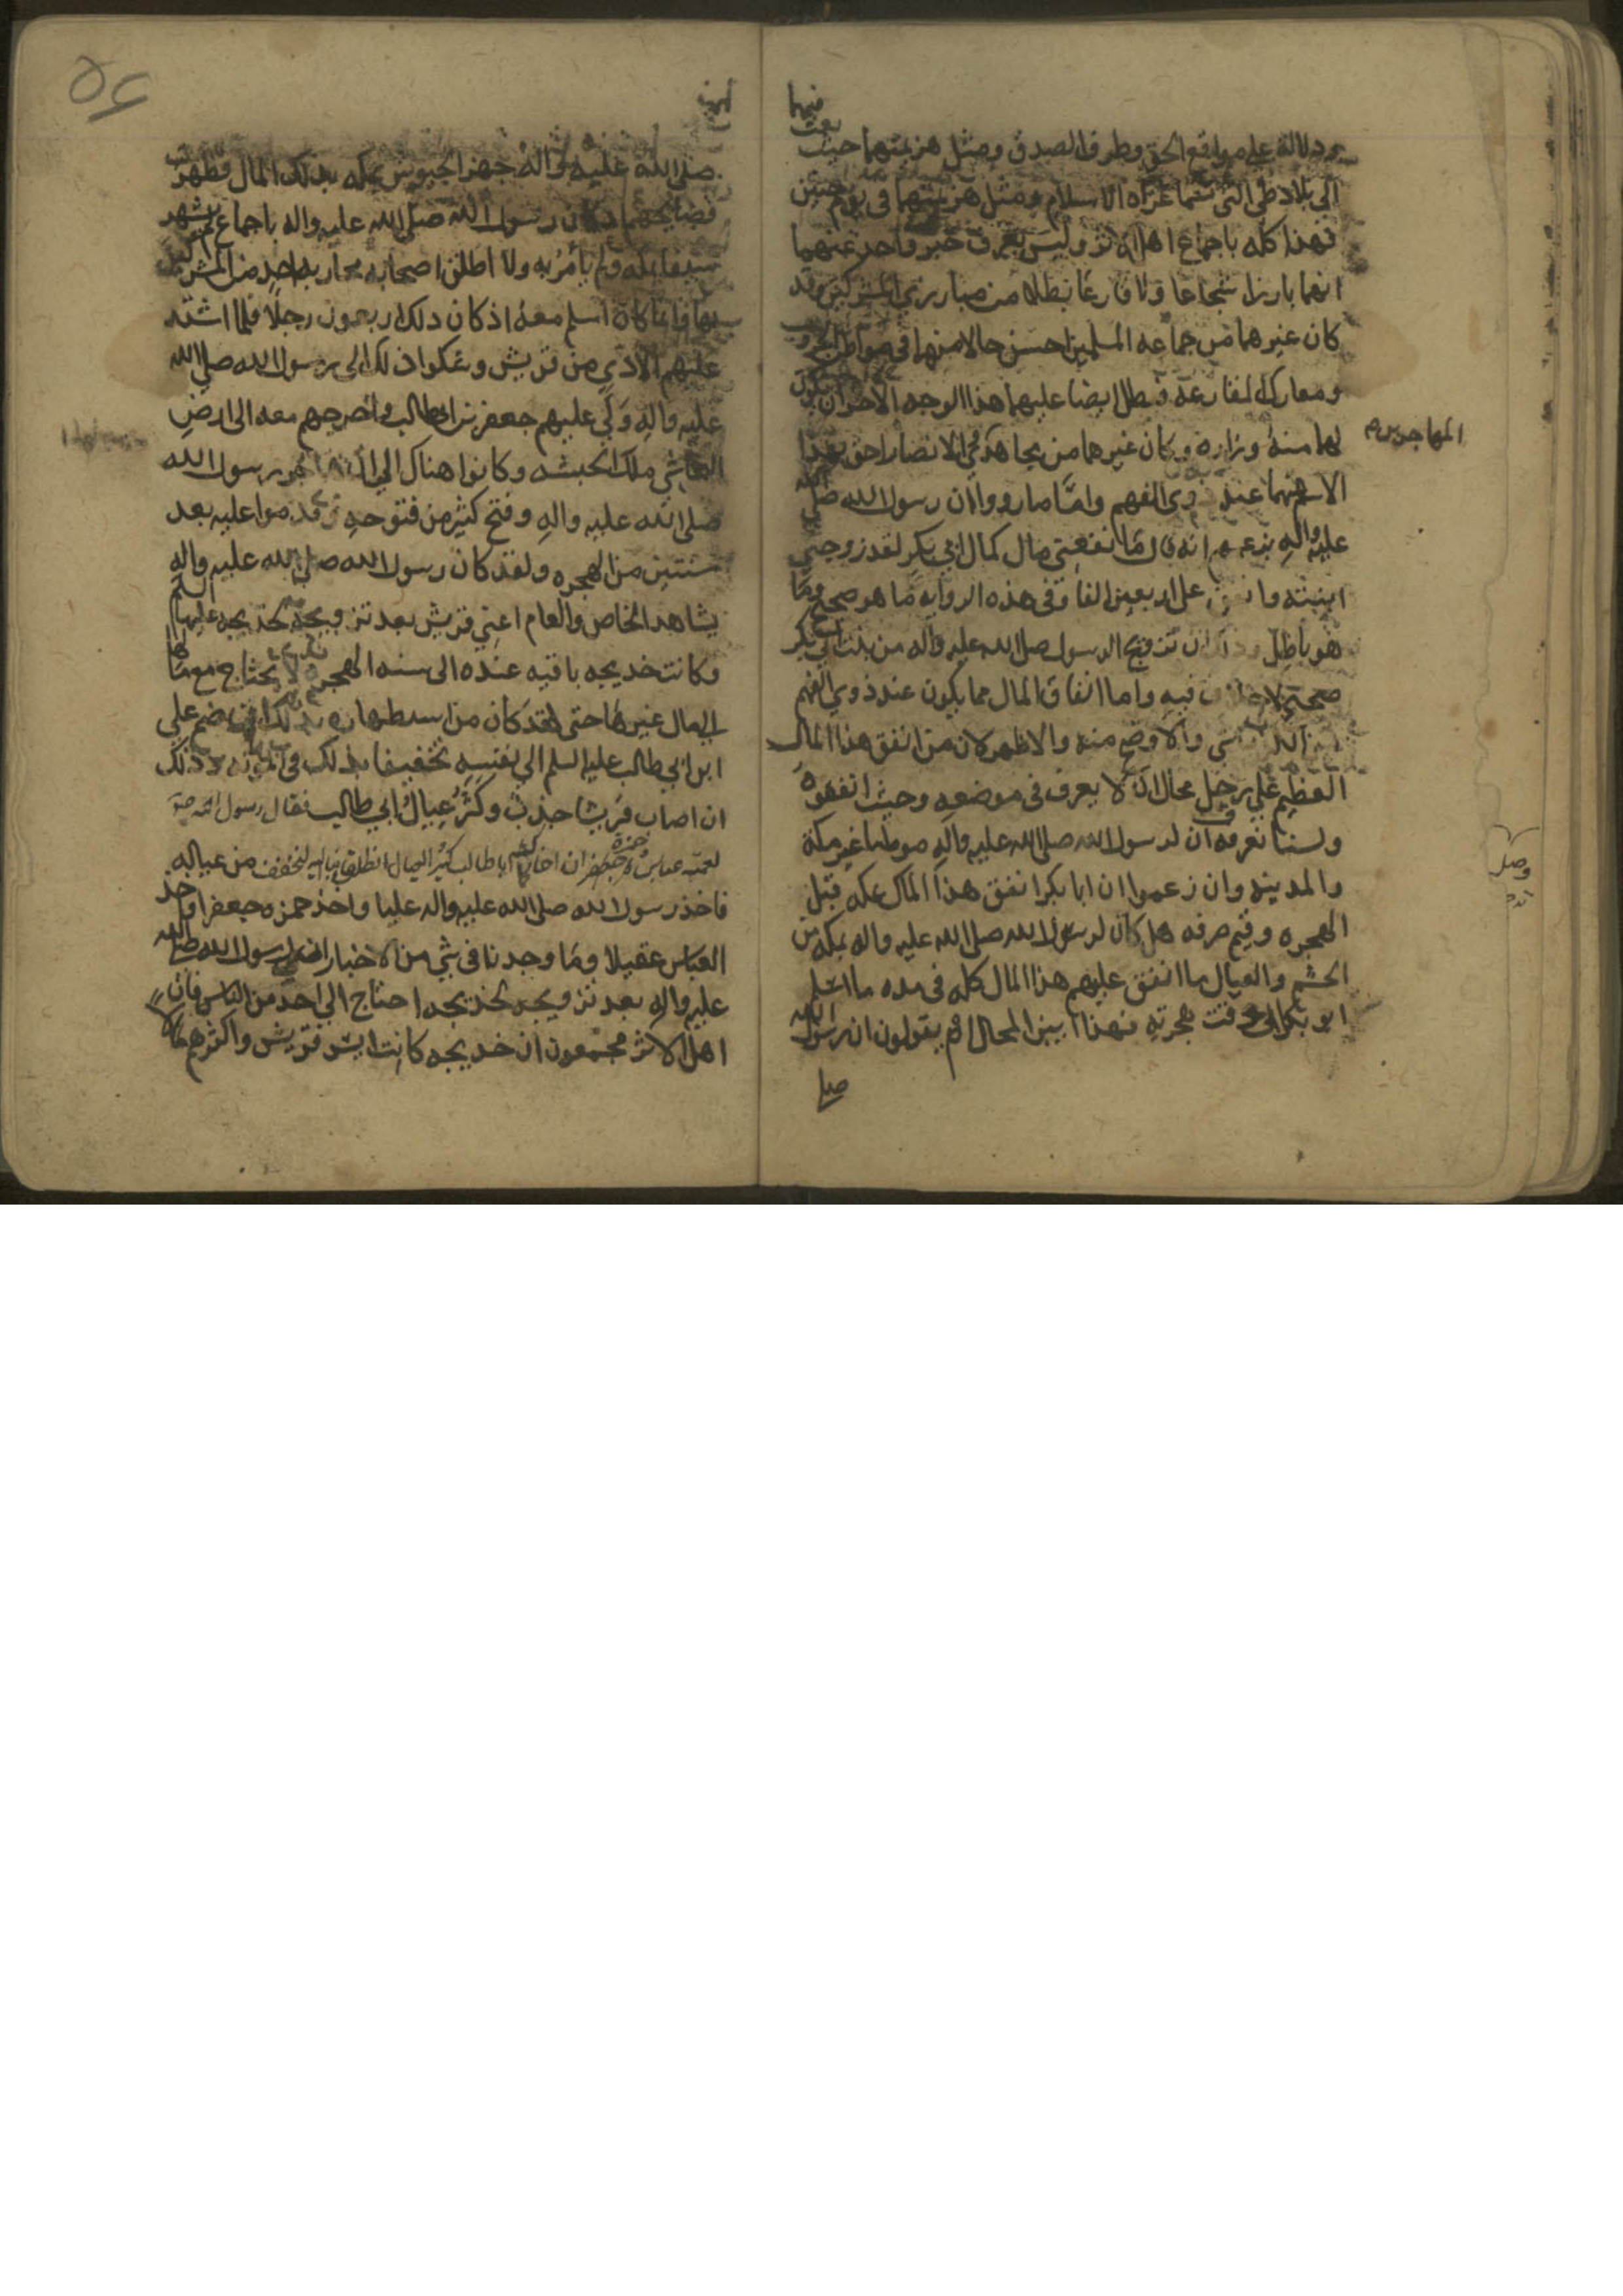 فيها بعث
ودلالة على مواقع الحق وطرف الصدق ومثل هزيمتهما حيث
الى بلاد طي التي غزاة الاسلام ومثل هزيمتهما في يوم حنين
فهذا كله باجماع اهل الاثر وليس يعرف خبر واحد عنهما
انهما بارزا شجاعا ولا قارعا بطلا من مبارزي المشركين وقد
كان غيرهما من جماعه المسلمين احسن حالا منهما في مواطن الحروب
ومعارك المقارعة فبطل ايضا عليهما هذا الوجه الاخر ان يكون
لهما منه وزاره وكان غيرهما من مجاهدي الانصار احق بهذا
المهاجرين و م
الاسم منهما عند ذوي الفهم واما ما رووا ان رسول الله صلى الله
عليه واله بزعمهم انه قال ما نفعني مال كمال ابي بكر لقد زوجني
ابنته وانفق على اربعين الفا ففي هذه الروايه ما هو صحيح وما
هو باطل وذلك ان تزويج الرسول صلى الله عليه واله من بنت ابي بكر
صحيح لا خلاف فيه واما انفاق المال مما يكون عند ذوي الفهم
والاوضح منه والاظهر لان من انفق هذا المال
العظيم على رجل محال ان لا يعرف في موضعه وحيث انفقوه
ولسنا نعرفه ان لرسول الله صلى الله عليه واله موطنا غير مكة
والمدينه وان زعموا ان ابا بكر انفق هذا المال بمكه قبل
الهجره وفيم صرفه هل كان لرسول الله صلى الله عليه واله بمكه من
الحشم والعيال ما انفق عليهم هذا المال كله في مده ما اسلم
ابو بكر الى وقت هجرته فهذا ابين المحال ام يقولون ان رسول الله
صلى
٥٤
صلى الله عليه واله جهز الجيوش بمكه بذلك المال فظهرت
فضايحهم اذ كان رسول الله صلى الله عليه واله باجماع لم يشهر
سيفا بمكه ولم يأمر به ولا اطلق اصحابه محاربة احد من المشركين
بها وانما كان اسلم معه اذ كان ذلك اربعون رجلا فلما اشتد
عليهم الاذى من قريش وشكوا ذلك الى رسول الله صلى الله
عليه واله ولى عليهم جعفر بن ابي طالب واخرجهم معه الى ارض
النجاشي ملك الحبشه وكانوا هناك الى ان هاجر رسول الله
صلى الله عليه واله وفتح كثير من فتوحه وقدموا عليه بعد
سنتين من الهجره ولقد كان رسول الله صلى الله عليه واله
يشاهد الخاص والعام اعني قريش بعد تزويجه بخديجه عليها السلم
وكانت خديجه باقيه عنده الى سنه الهجره لا يحتاج مع مالها
الى مال غيرها حتى لقد كان من استظهاره بذلك ان ضم علي
ابن ابي طالب عليه السلم الى نفسه تخفيفا بذلك في المؤنه وذلك
ان اصاب قريشا جدب وكثر عيال ابي طالب فقال رسول الله صلعم
لعمه عباس وحمزة ان اخاكما ابا طالب كثير العيال انطلق بنا اليه لنخفف من عياله
فاخذ رسول الله صلى الله عليه واله عليا واخذ حمزه جعفرا واخذ
العباس عقيلا وما وجدنا في شي من الاخبار ان رسول الله صلى الله
عليه واله بعد تزويجه بخديجه احتاج الى احد من الناس فان
اهل الاثر مجمعون ان خديجه كانت ايسر قريش واكثرهم مالا